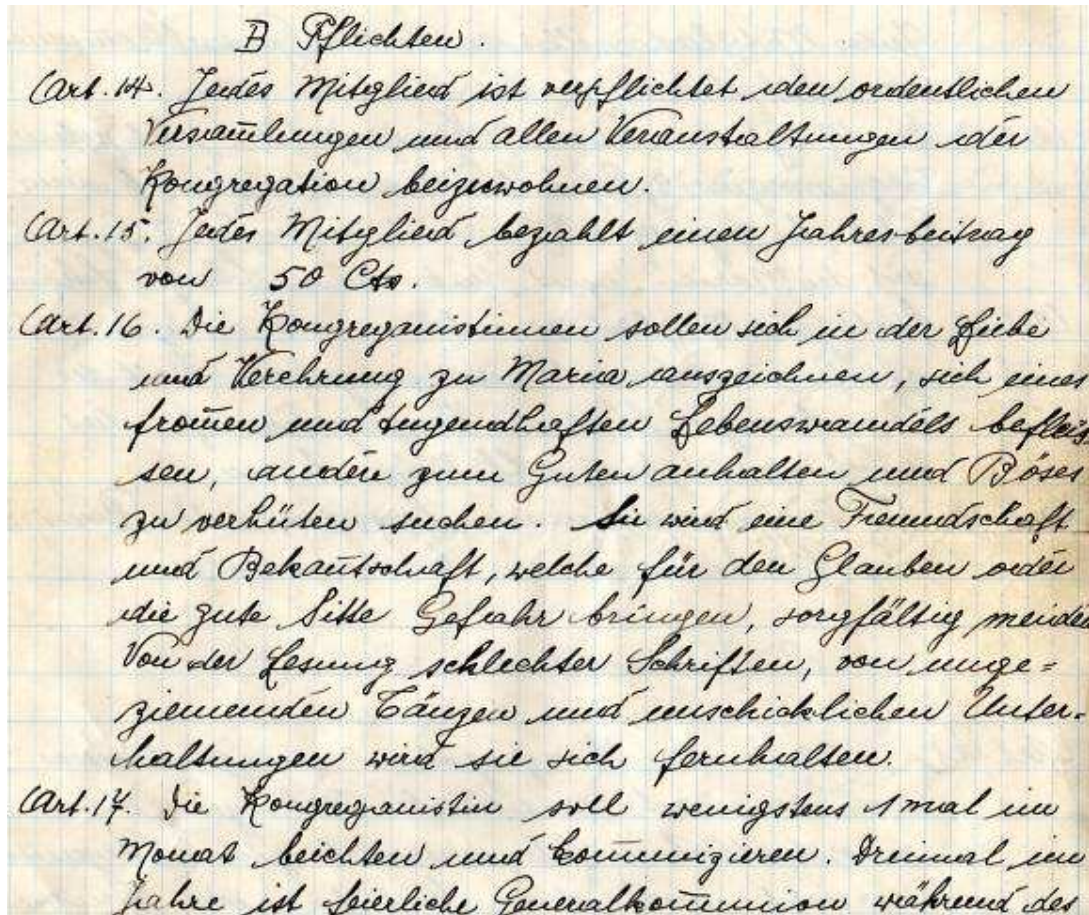 B Pflichten.
Art. 14. Jedes Mitglied ist verpflichtet den ordentlichen
Versam̅lungen und allen Veranstaltungen der
Kongregation beizuwohnen.
Art. 15. Jedes Mitglied bezahlt einen Jahresbeitrag
von 50 Cts.
Art. 16. Die Kongreganistinnen sollen sich in der Liebe
und Verehrung zu Maria auszeichnen, sich eines
from̅en und tugendhaften Lebenswandels befleis
sen, andere zum Guten anhalten und Böses
zu verhüten suchen. Sie wird eine Freundschaft
und Bekan̅tschaft, welche für den Glauben oder
die gute Sitte Gefahr bringen, sorgfältig meiden
Von der Lesung schlechter Schriften, von unge=
ziemenden Tänzen und unschicklichen Unter-
haltungen wird sie sich fernhalten.
Art. 17. Die Kongreganistin soll wenigstens 1 mal im
Monat beichten und kom̅unizieren. Dreimal im
Jahre ist feierliche Generalkom̅union während des